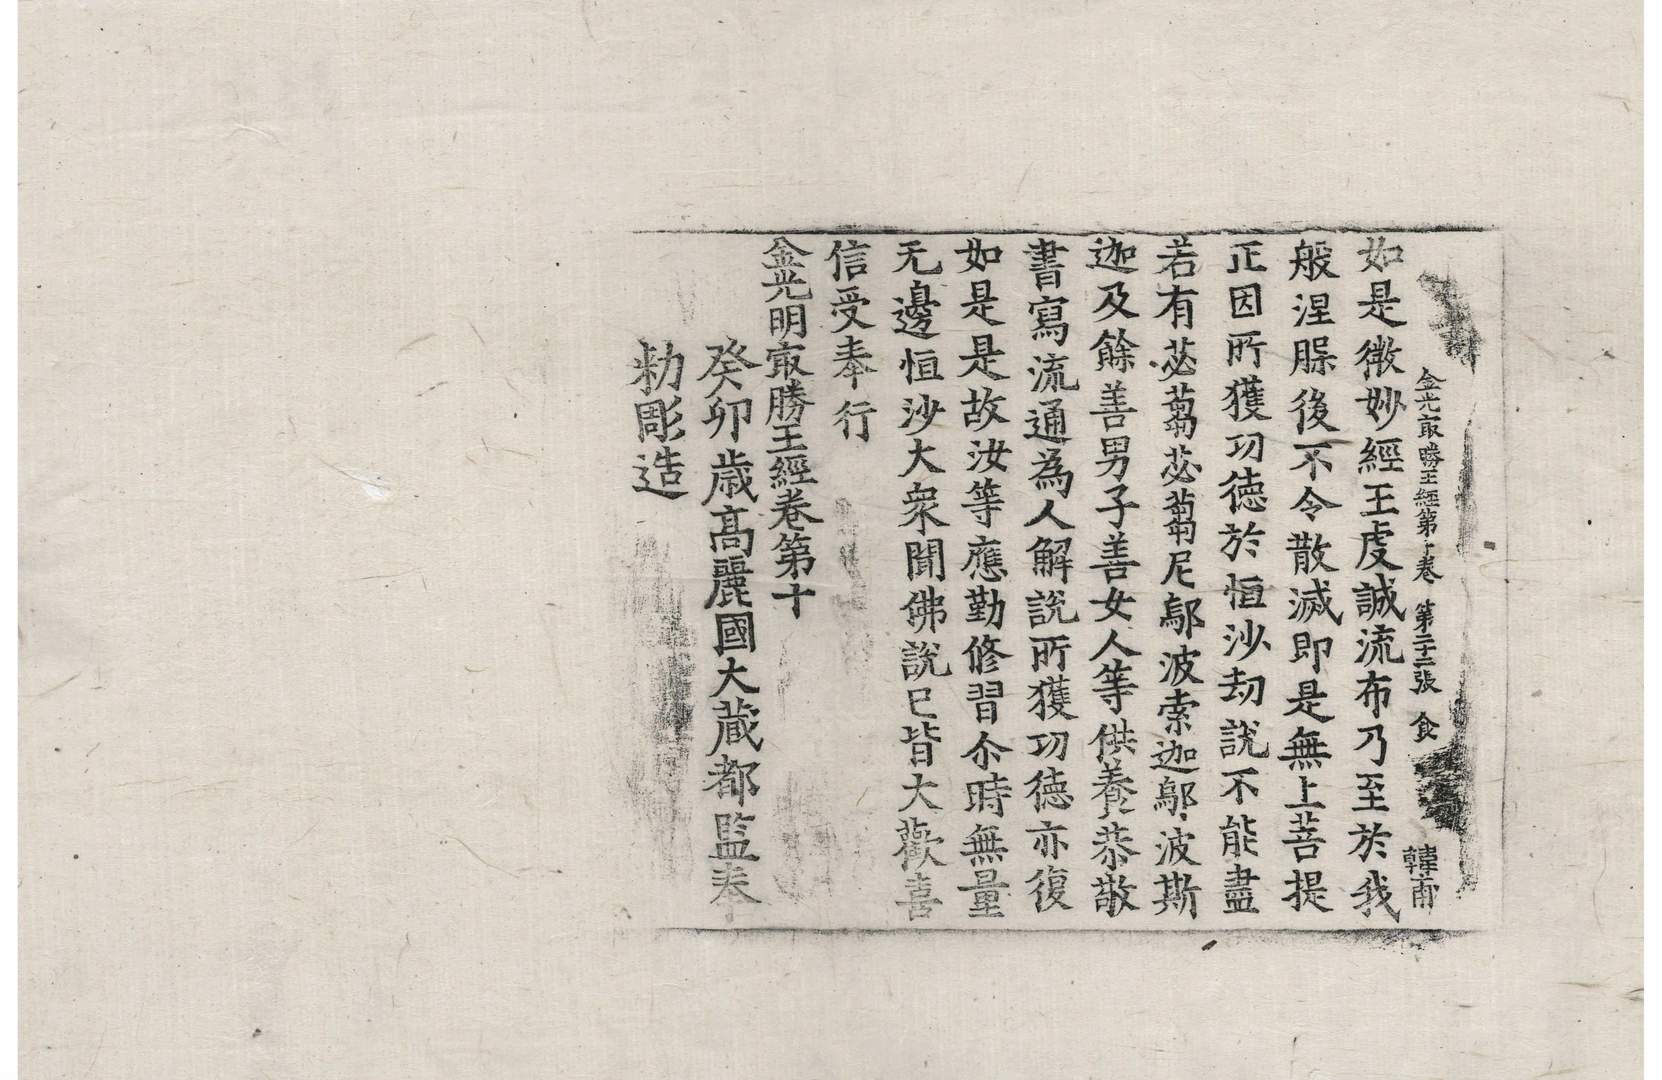 金光㝡勝王經第十卷 第二十二張 食 韓甫
如是微妙經王虔誠流布乃至於我
般涅脲後不令散滅即是無上菩提
正因所獲功德於恒沙劫說不能盡
若有苾蒭苾蒭尼鄔波索迦鄔波斯
迦及餘善男子善女人等供養恭敬
書寫流通為人解說所獲功德亦復
如是是故汝等應勤修習尒時無量
无邊恒沙大衆聞佛說已皆大歡喜
信受奉行
金光明㝡勝王經卷第十
癸卯歲高麗國大藏都監奉
勑彫造